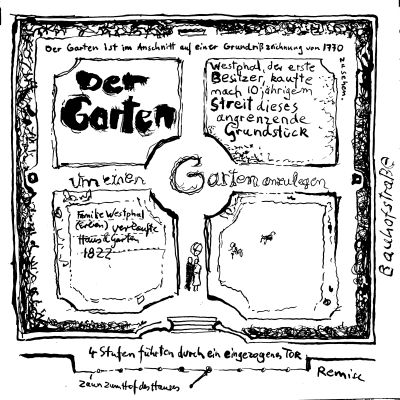 Der Garten ist im Anschnitt auf einer Grundrißzeichnung von 1770
zu sehen.
Der
Garten
Westphal, der erste
Besitzer, kaufte
nach 10 jährigem
Streit dieses
angrenzende
Grundstück
um einen Garten anzulegen
Familie Westphal
(Erben) verkaufte
Haus & Garten
1822
Bauhofstraße
4 Stufen führten durch ein eingezogenes TOR
Zaun zum Hof des Hauses
Remise